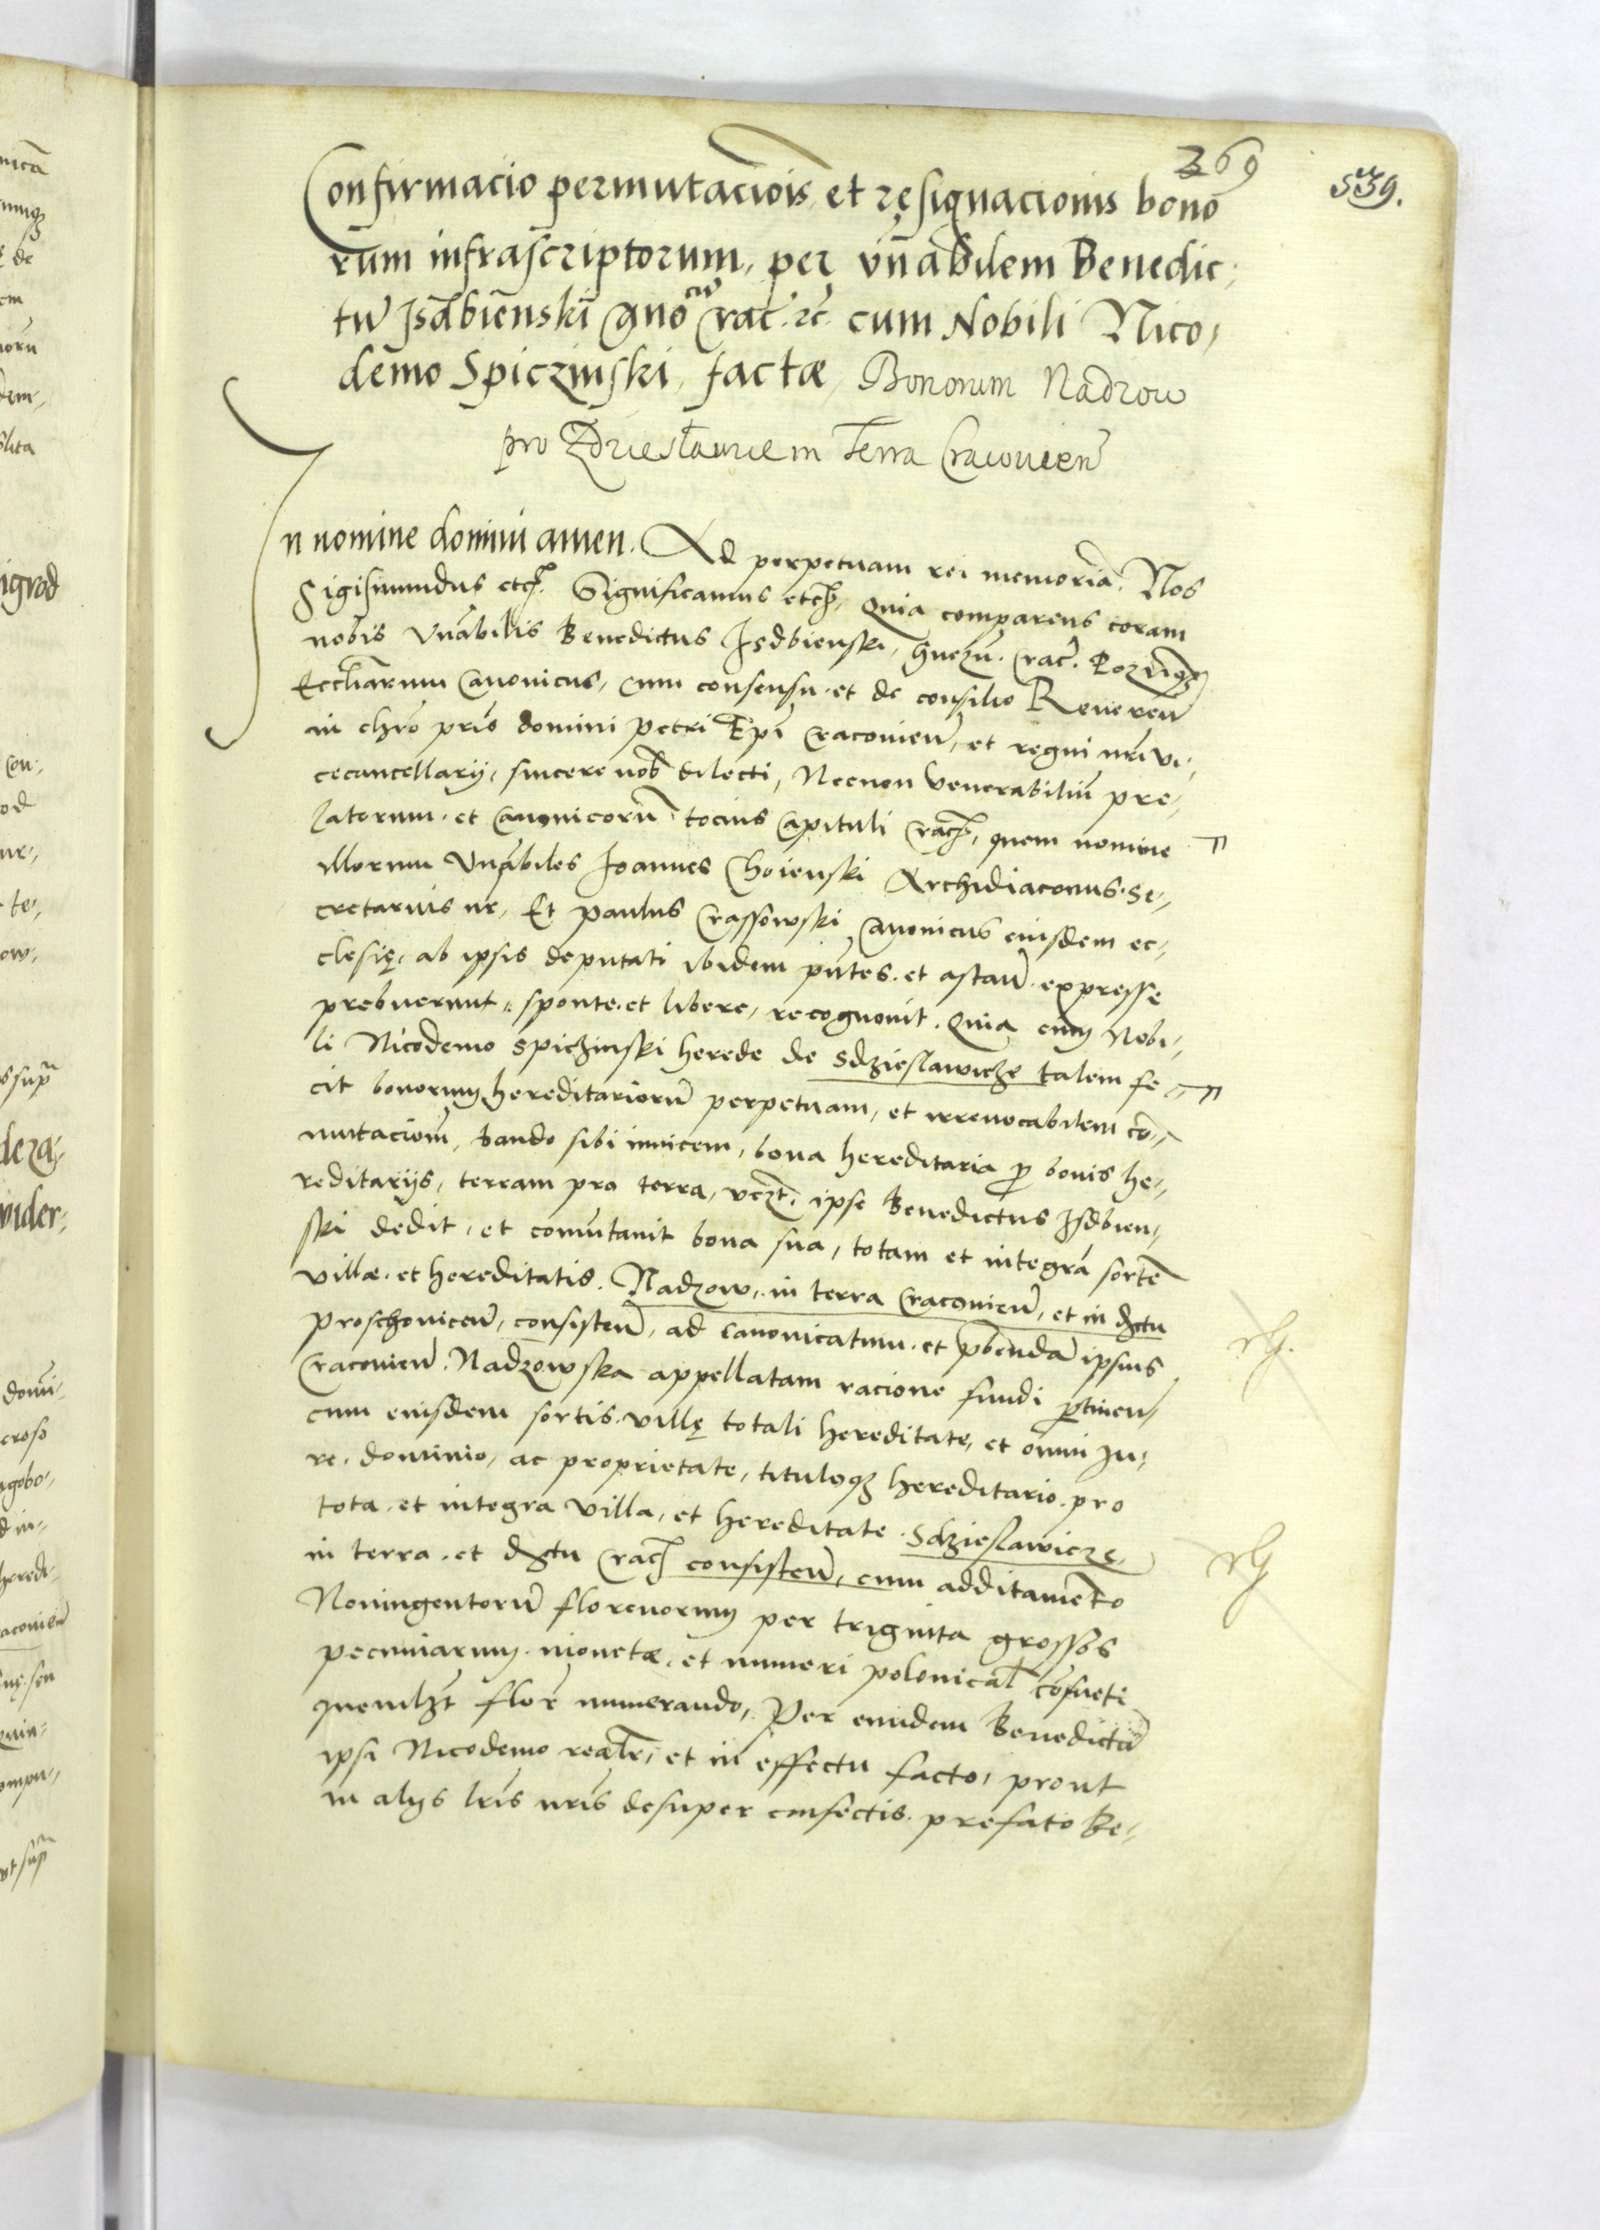 269
539.
Confirmacio permutaciois et resignacionis bono
rum infrascriptorum, per vnabilem Benedic-
tu Isdbienski Cano cum Crac. etc. cum Nobili Nico-
demo Spiczinski, factae, Bonorum Nadzow
pro Zdzieslawice in Terra Cracovien
In nomine domini amen. Ad perpetuam rei memoria. Nos
Sigismundus etc. Significamus etc. Quia comparens coram
nobis Vnabilis Benedictus Isdbienski, Gnezn. Crac. Pozn q
Eccliarum Canonicus, cum consensu et de consilio Reueren
in chro pris domini Petri Epi Cracouien, et regni nri vi-
cecancellarij, sincere nob dilecti, Necnon Venerabiliu pre-
latorum et Canonicoru tocius Capituli Crac, quem nomine
illorum Vnabiles Joannes Choienski Archidiaconus Se-
cretarius nr, Et Paulus Crassowski Canonicus eiusdem ec-
clesię, ab ipsis deputati ibidem pntes et astan expresse
prebuerunt, sponte et libere, recognouit. Quia cum Nobi-
li Nicodemo Spiczinski herede de Sdzieslawicze talem fe-
cit bonorum hereditarioru perpetuam, et irreuocabilem co-
mutaciom, dando sibi inuicem, bona hereditaria p bonis he-
reditarijs, terram pro terra, vczt. ipse Benedictus Isdbien-
ski dedit, et comutauit bona sua, totam et integra sorte
villae et hereditatis Nadzow, in terra Cracouien, et in dctu
Proschouicen, consisten, ad Canonicatum et pbenda ipsius
Cracouien Nadzowska appellatam racione fundi ptinen
cum eiusdem sortis villę totali hereditate, et omni iu-
re, dominio, ac proprietate, tituloq hereditario pro
tota et integra villa, et hereditate Sdzieslawiczę
in terra et dctu Crac consisten, cum additamento
Noningentoru florenorum per triginta grossos
pecuniarum monetae, et numeri polonical consueti
inquemlzt flor numerando, Per eundem Benedictu
ipsi Nicodemo realr, et in effectu facto, prout
in alijs lris nris desuper confectis prefato Be-